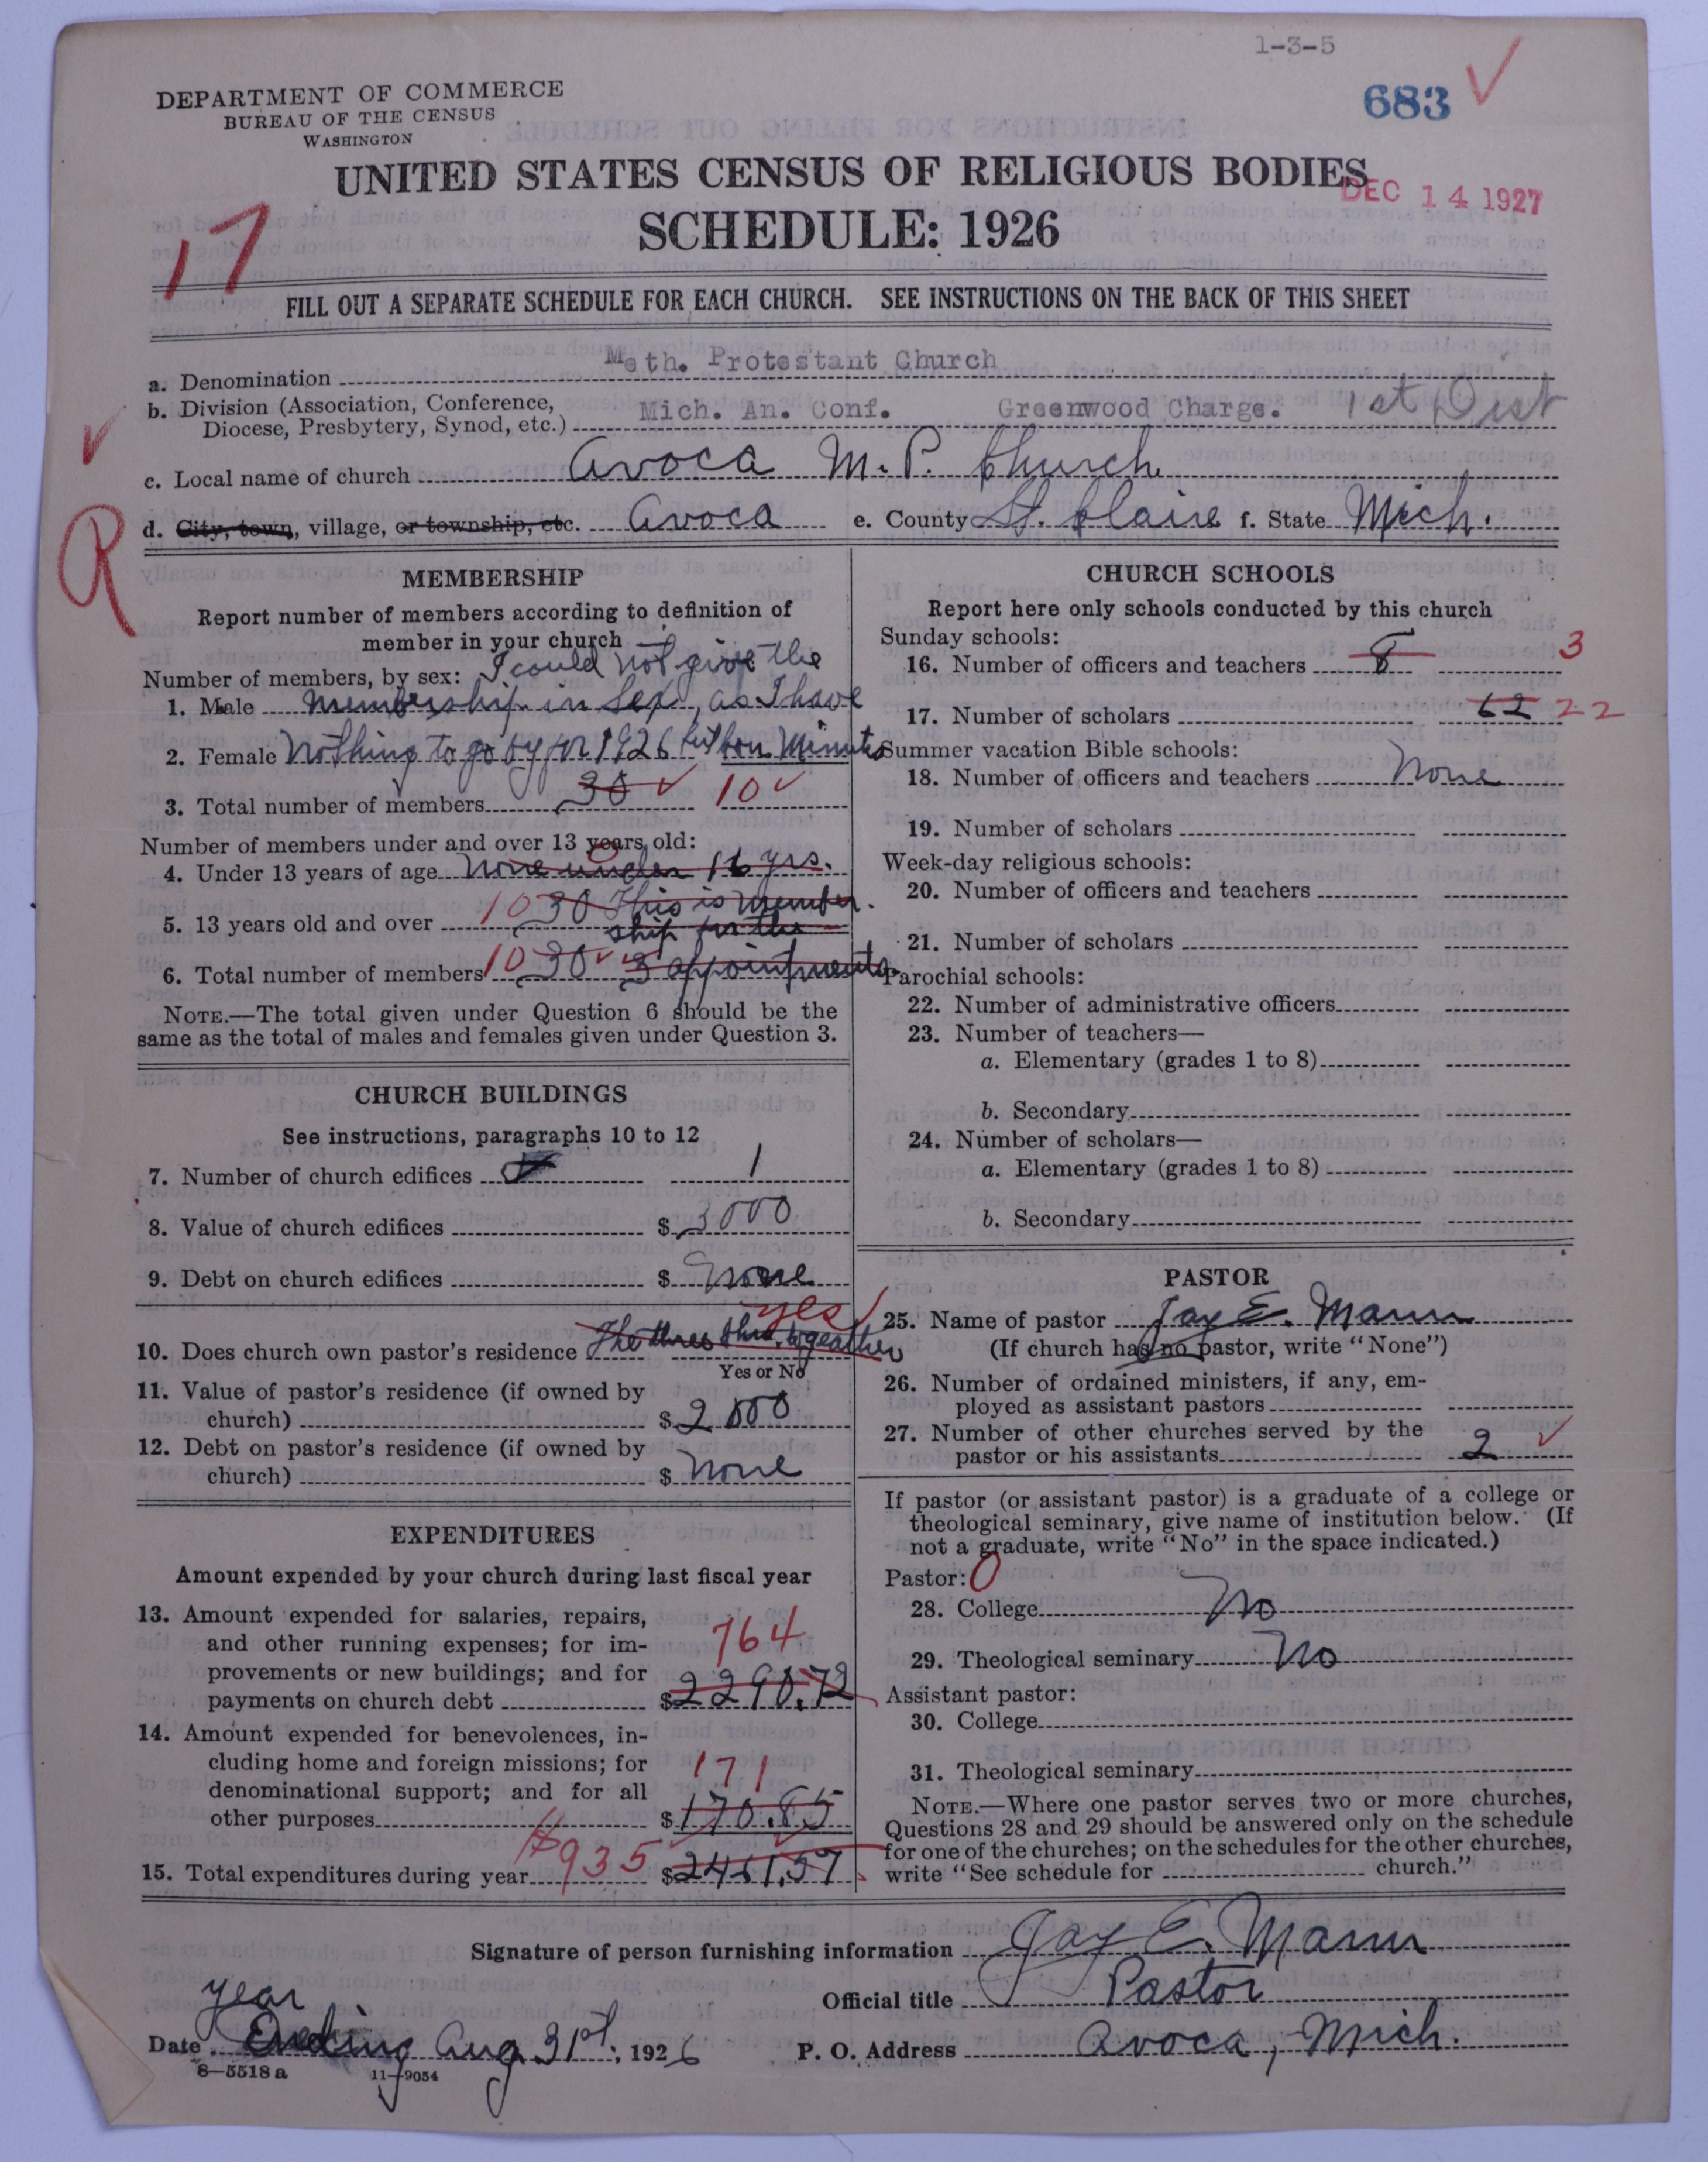 1-3-5
683
DEPARTMENT OF COMMERCE
BUREAU OF THE CENSUS
WASHINGTON
UNITED STATES CENSUS OF RELIGIOUS BODIES
DEC 14 1927
SCHEDULE: 1926
17
FILL OUT A SEPARATE SCHEDULE FOR EACH CHURCH. SEE INSTRUCTIONS ON THE BACK OF THIS SHEET
a. Denomination Meth. Protestant Church
b. Division (Association, Conference,
Diocese, Presbytery, Synod, etc.) Mich. An. Conf. Greenwood Charge. 1st Dist
c. Local name of church Avoca M. P. Church
d. City, town, village, or township, etc. Avoca e. County St. Claire f. State Mich.
R
MEMBERSHIP
Report number of members according to definition of
member in your church
Number of members, by sex: I could not give the
1. Male membership in Sex, as I have
2. Female Nothing to go by for 1926 but Con Minuts
3. Total number of members 30 10
Number of members under and over 13 years old:
4. Under 13 years of age None under 16 yrs. 0
5. 13 years old and over 10 30 This is Member
ship for the
6. Total number of members 10 30 3 appointments
NOTE.—The total given under Question 6 should be the
same as the total of males and females given under Question 3.
CHURCH BUILDINGS
See instructions, paragraphs 10 to 12
7. Number of church edifices 1
8. Value of church edifices $ 3000
9. Debt on church edifices $ None
yes
10. Does church own pastor's residence The three Chu. togeather
Yes or No
11. Value of pastor's residence (if owned by
church) $ 2000
12. Debt on pastor's residence (if owned by
church) $ None
EXPENDITURES
Amount expended by your church during last fiscal year
13. Amount expended for salaries, repairs,
and other running expenses; for im- 764
provements or new buildings; and for
payments on church debt $ 2290.72
14. Amount expended for benevolences, in-
cluding home and foreign missions; for 171
denominational support; and for all
other purposes $ 170.85
15. Total expenditures during year $935 $ 2461.57
CHURCH SCHOOLS
Report here only schools conducted by this church
Sunday schools:
16. Number of officers and teachers 8 3
17. Number of scholars 62 22
Summer vacation Bible schools:
18. Number of officers and teachers None
19. Number of scholars
Week-day religious schools:
20. Number of officers and teachers
21. Number of scholars
Parochial schools:
22. Number of administrative officers
23. Number of teachers—
a. Elementary (grades 1 to 8)
b. Secondary
24. Number of scholars—
a. Elementary (grades 1 to 8)
b. Secondary
PASTOR
25. Name of pastor Jay E. Mann
(If church has no pastor, write "None")
26. Number of ordained ministers, if any, em-
ployed as assistant pastors
27. Number of other churches served by the
pastor or his assistants 2
If pastor (or assistant pastor) is a graduate of a college or
theological seminary, give name of institution below. (If
not a graduate, write "No" in the space indicated.)
Pastor: 0
28. College No
29. Theological seminary No
Assistant pastor:
30. College
31. Theological seminary
NOTE.—Where one pastor serves two or more churches,
Questions 28 and 29 should be answered only on the schedule
for one of the churches; on the schedules for the other churches,
write "See schedule for church."
Signature of person furnishing information Jay E. Mann
Official title Pastor
year
Date Ending Aug 31st, 1926 P. O. Address Avoca, Mich.
8—5518 a 11—9054